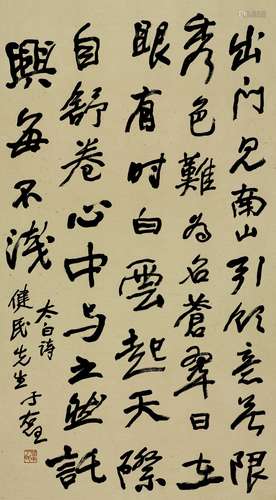 出门见南山引领意无限
秀色難為名蒼翠日在
眼有时白雲起天際
自舒卷心中与之然託
興每不淺
太白诗
健民先生 于右任